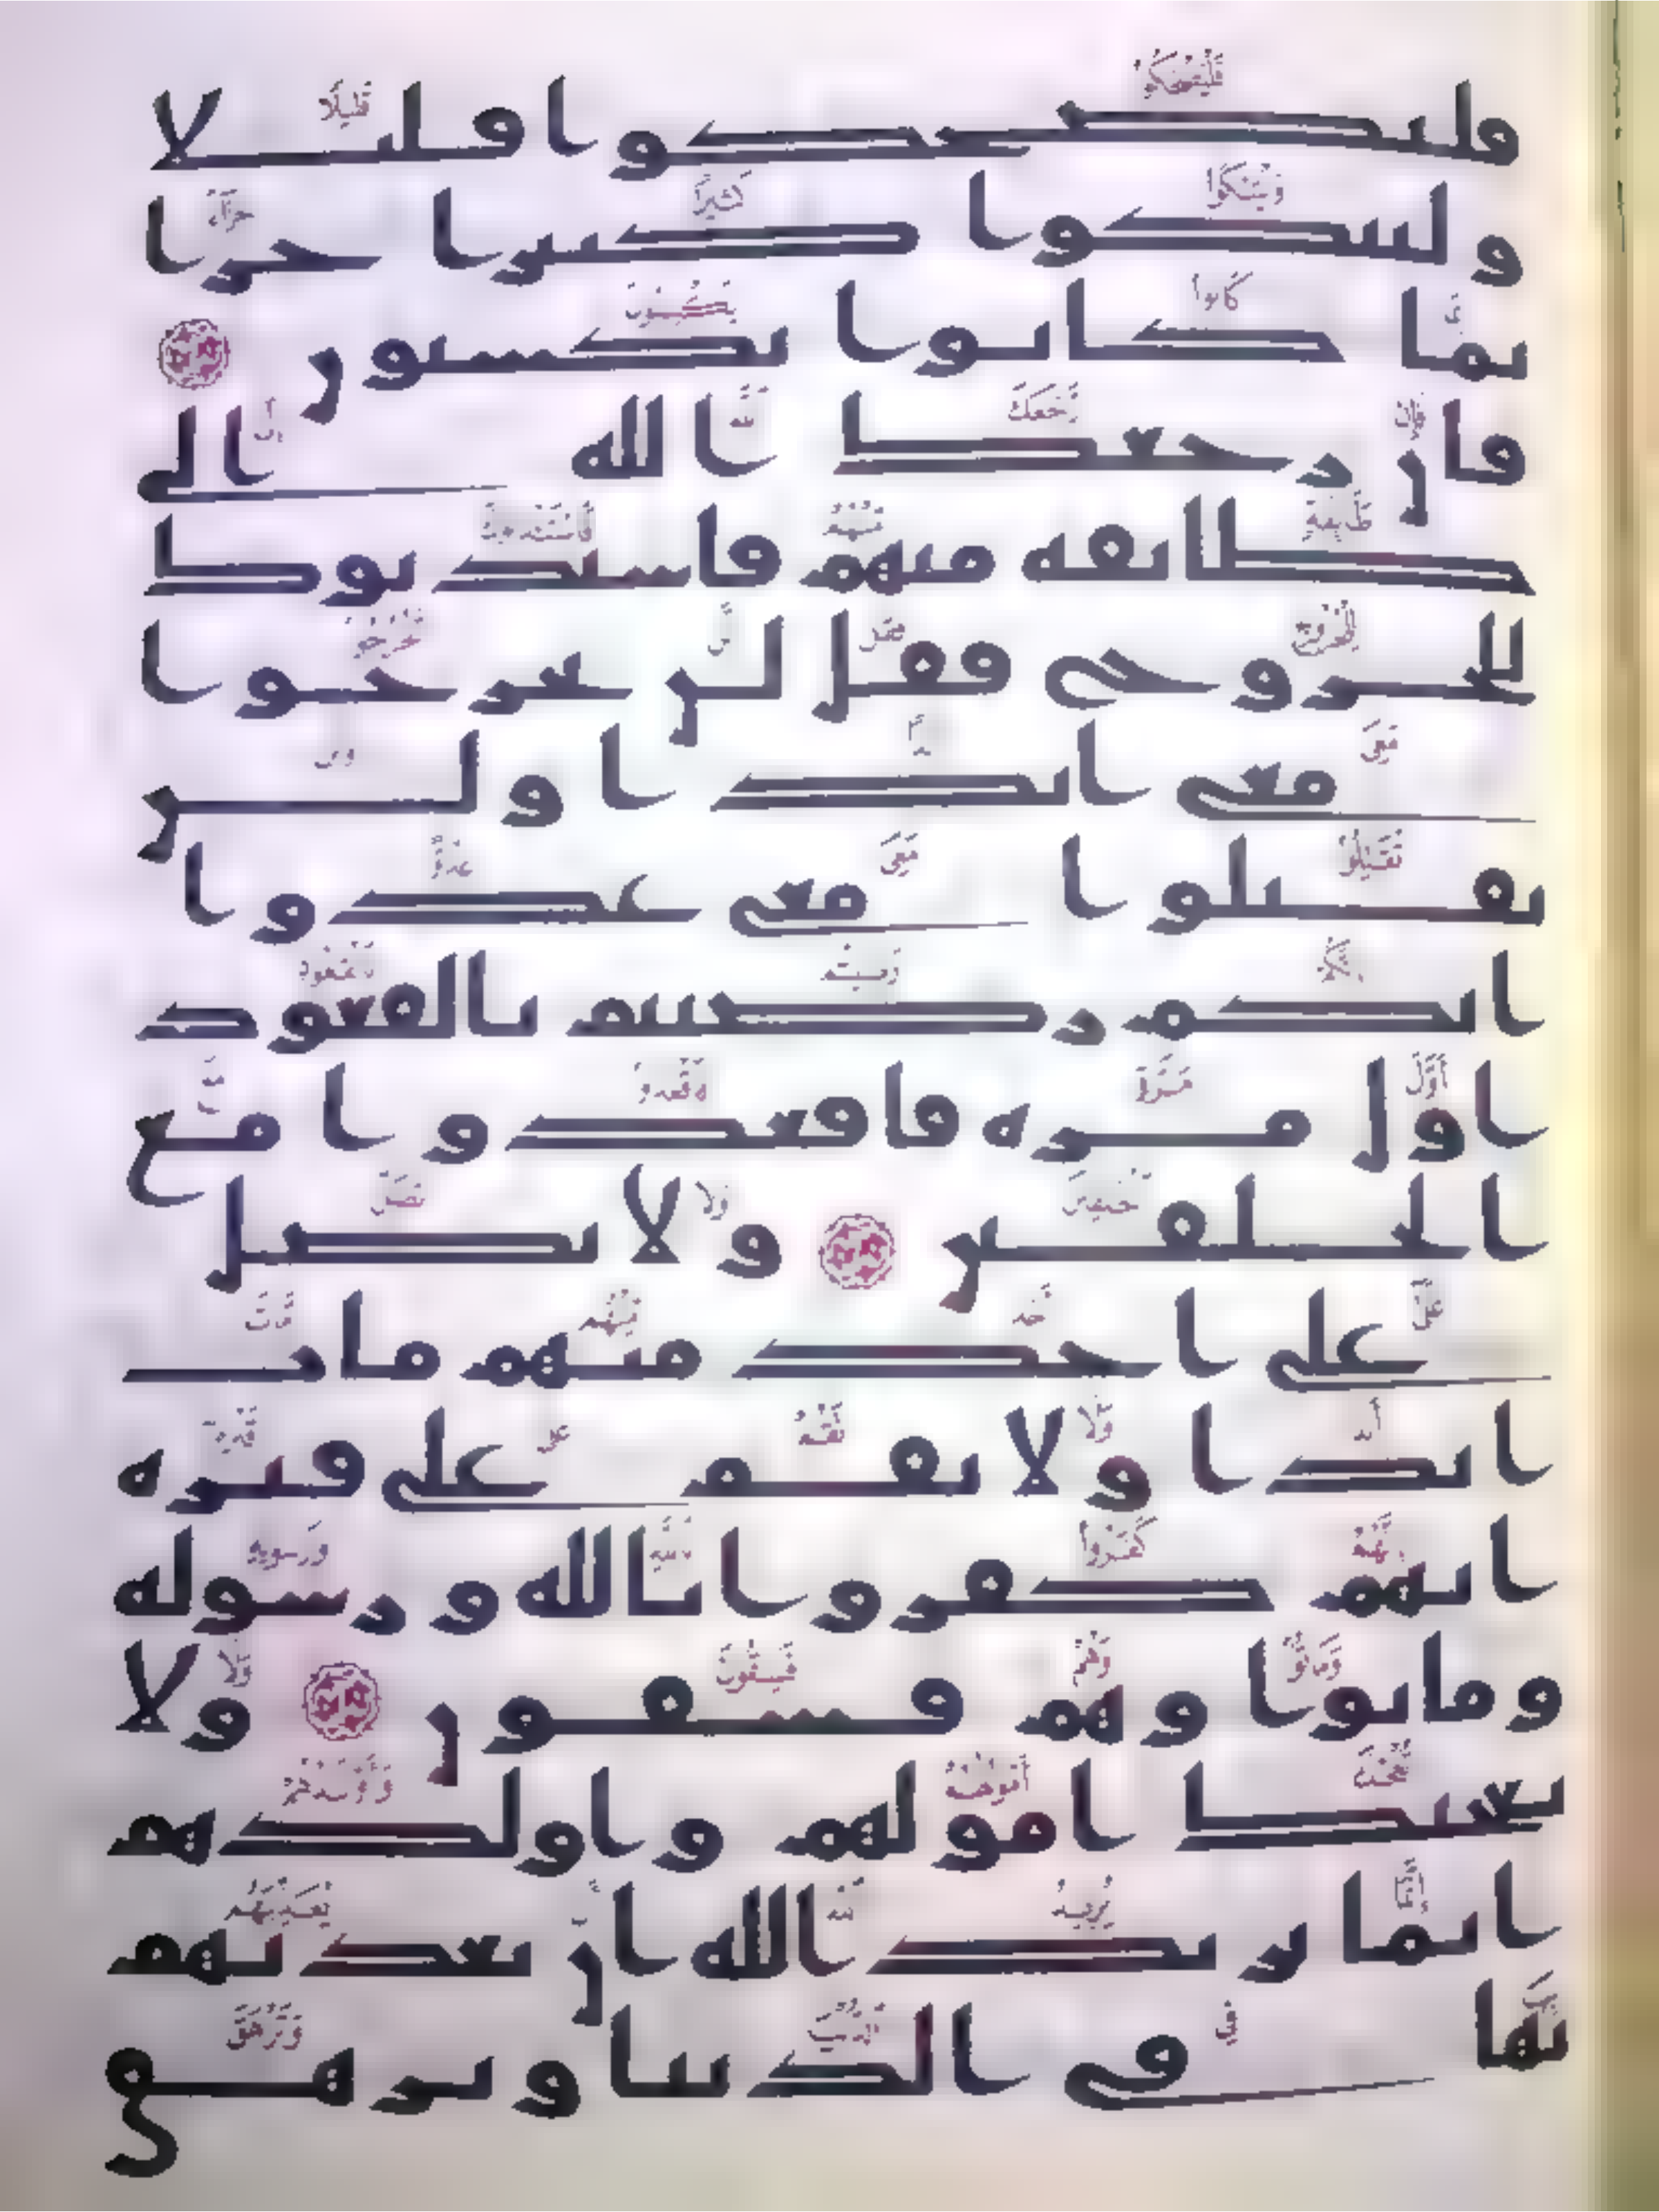 فليضحكوا قليلا
وليبكوا كثيرا جزا
بما كانوا يكسبون
فان رجعك الله الى
طائفه منهم فاستـذنوك
للخروج فقل لن تخرجوا
معى ابدا ولن
تقتلوا معى عدوا
انكم رضيتم بالقعود
اول مره فاقعدوا مع
الخلفين ولا تصل
على احد منهم مات
ابدا ولا تقم على قبره
انهم كفروا بالله ورسوله
وماتوا وهم فسقون ولا
تعجبك امولهم واولدهم
انما يريد الله ان يعذبهم
بها فى الدنيا وتزهق